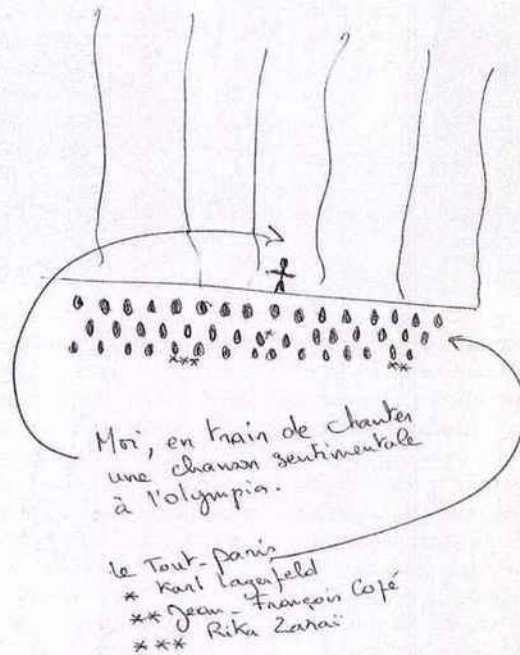 *
***
**
Moi, en train de chanter
une chanson sentimentale
à l'olympia.
Le Tout-paris
* Karl Lagerfeld
** Jean-François Copé
*** Rika Zaraï